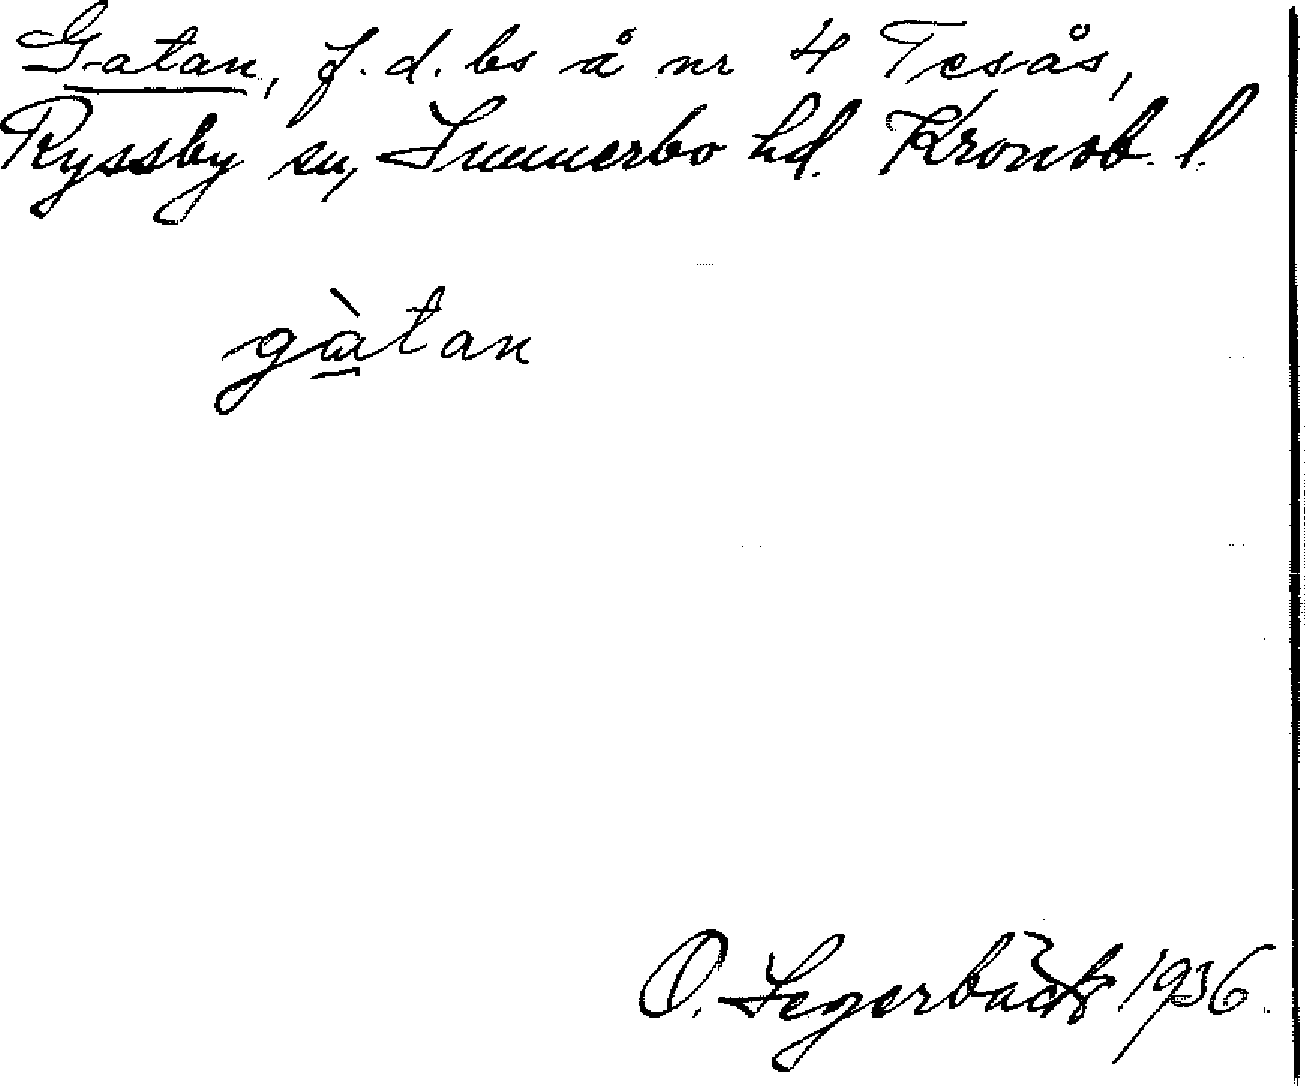 Gatan, f.d. bs å nr 4 Tesås,
Ryssby sn, Sunnerbo hd. Kronob. l.
gàtan
O. Segerbäck 1936.